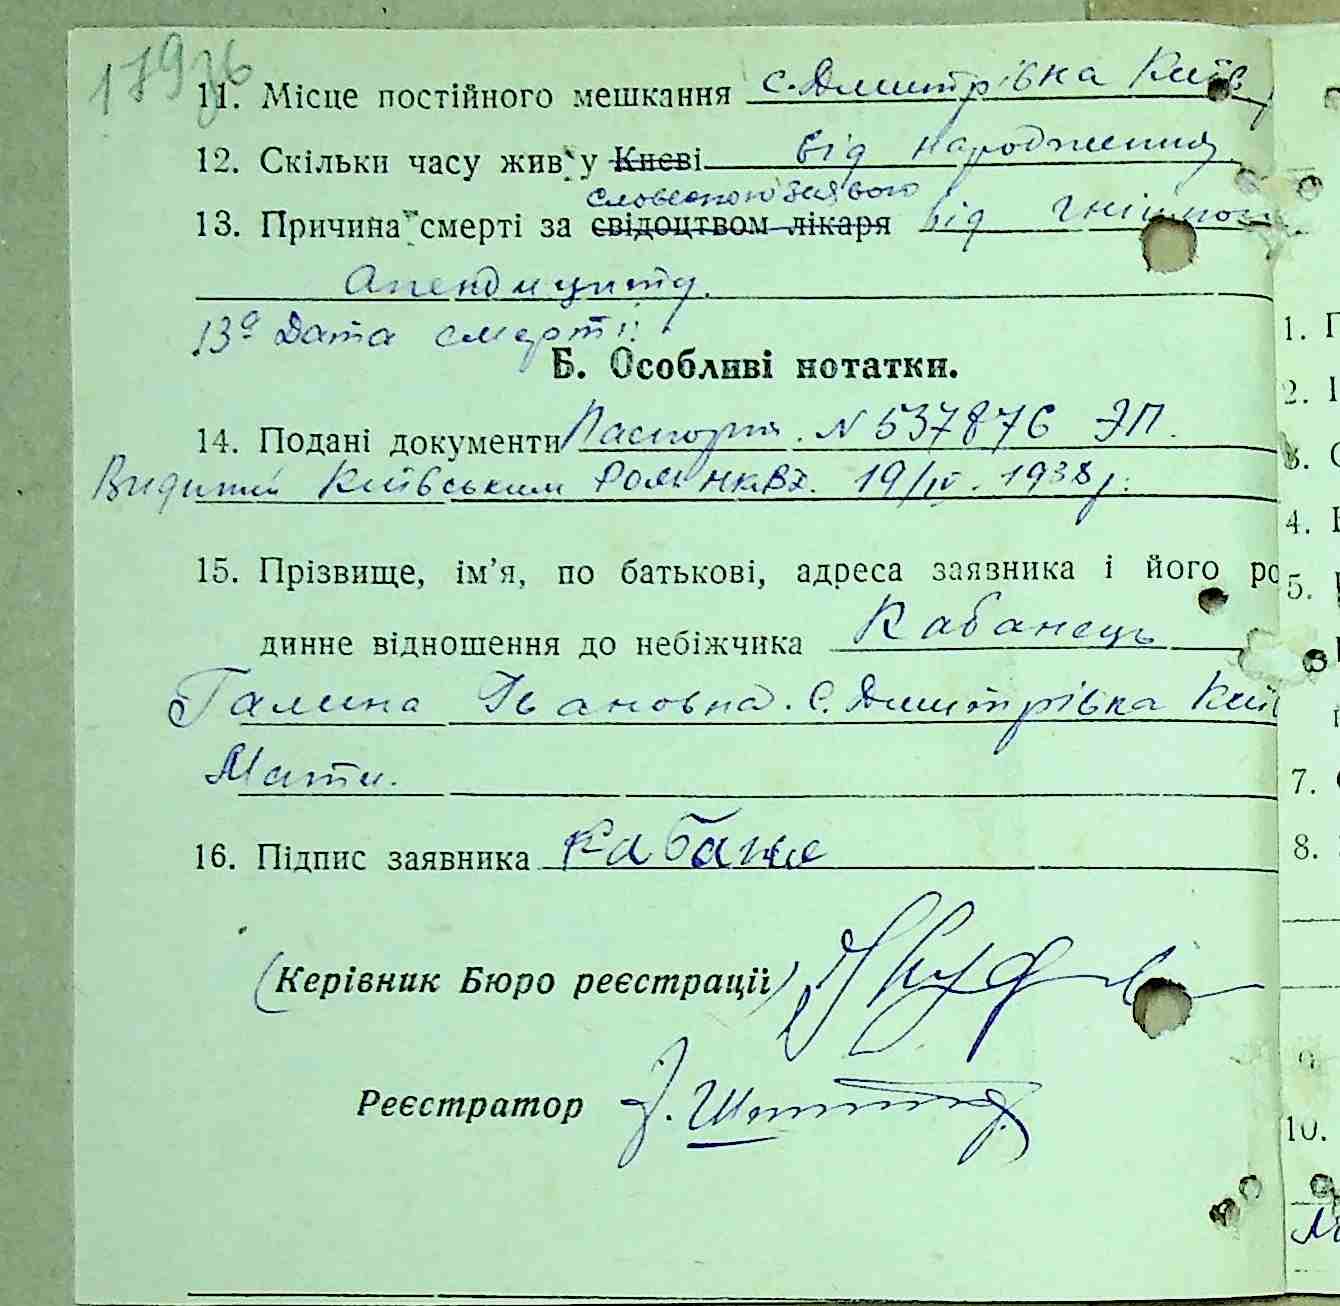 11. Місце постійного мешкання с. Дмитрівка Київ
12. Скільки часу жив у Києві від народження
словесною заявою
13. Причина смерті за свідоцтвом лікаря від гнійного
Апендициту.
13а Дата смерті:
Б. Особливі нотатки.
14. Подані документи Паспорт. N 537876 ЭП.
Видитий Київським НКВД. 19/IV. 1938 р.
15. Прізвище, ім’я, по батькові, адреса заявника і його ро
динне відношення до небіжчика Кабанець
Галина Івановна. С. Дмитрівка Киї
Мати.
16. Підпис заявника Кабане
(Керівник Бюро реєстрації)
Реєстратор
1.
2.
3.
4.
5.
7.
8.
9.
10.